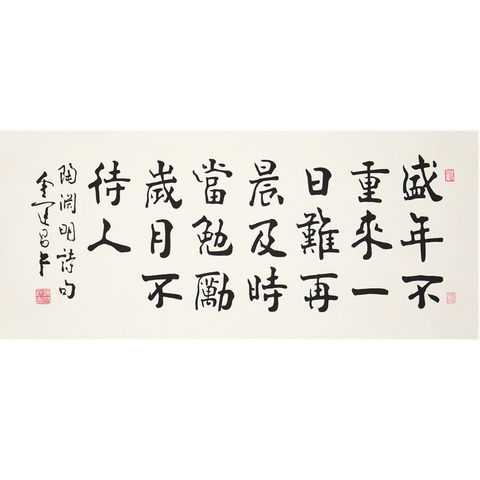 盛年不
重來一
日難再
晨及時
當勉勵
歲月不
待人
陶渊明詩句
金运昌书